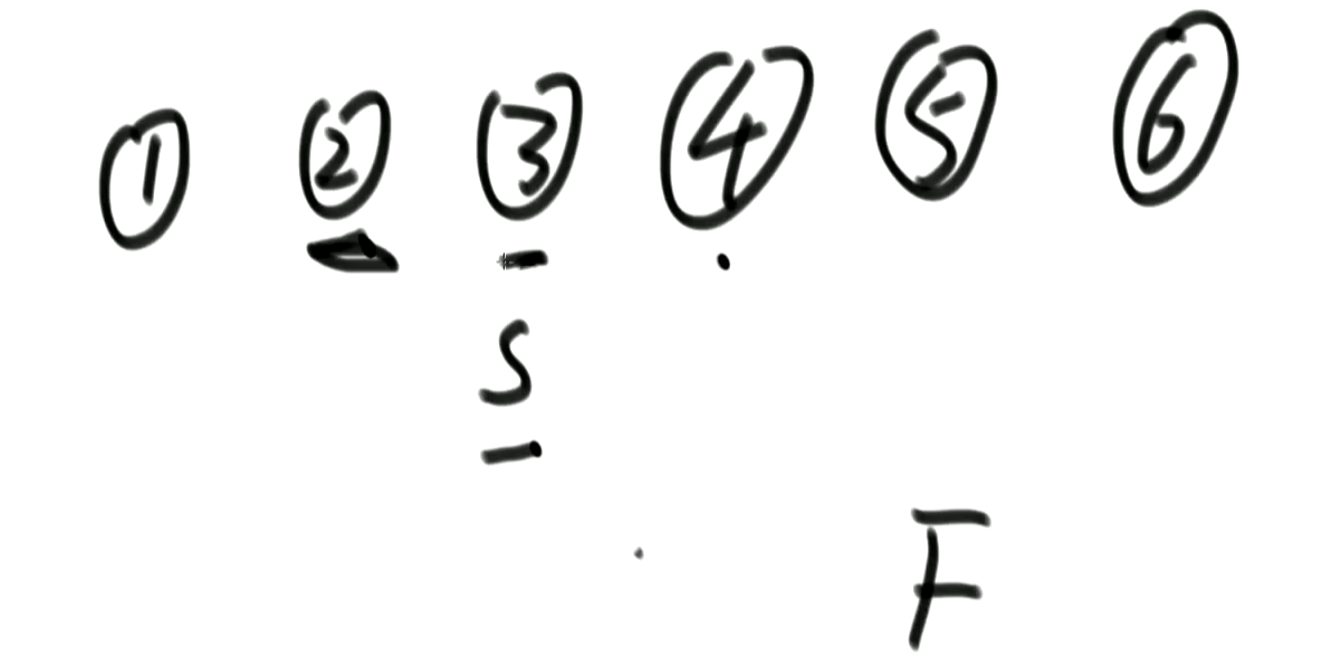 ① ② ③ ④ ⑤ ⑥
S
F